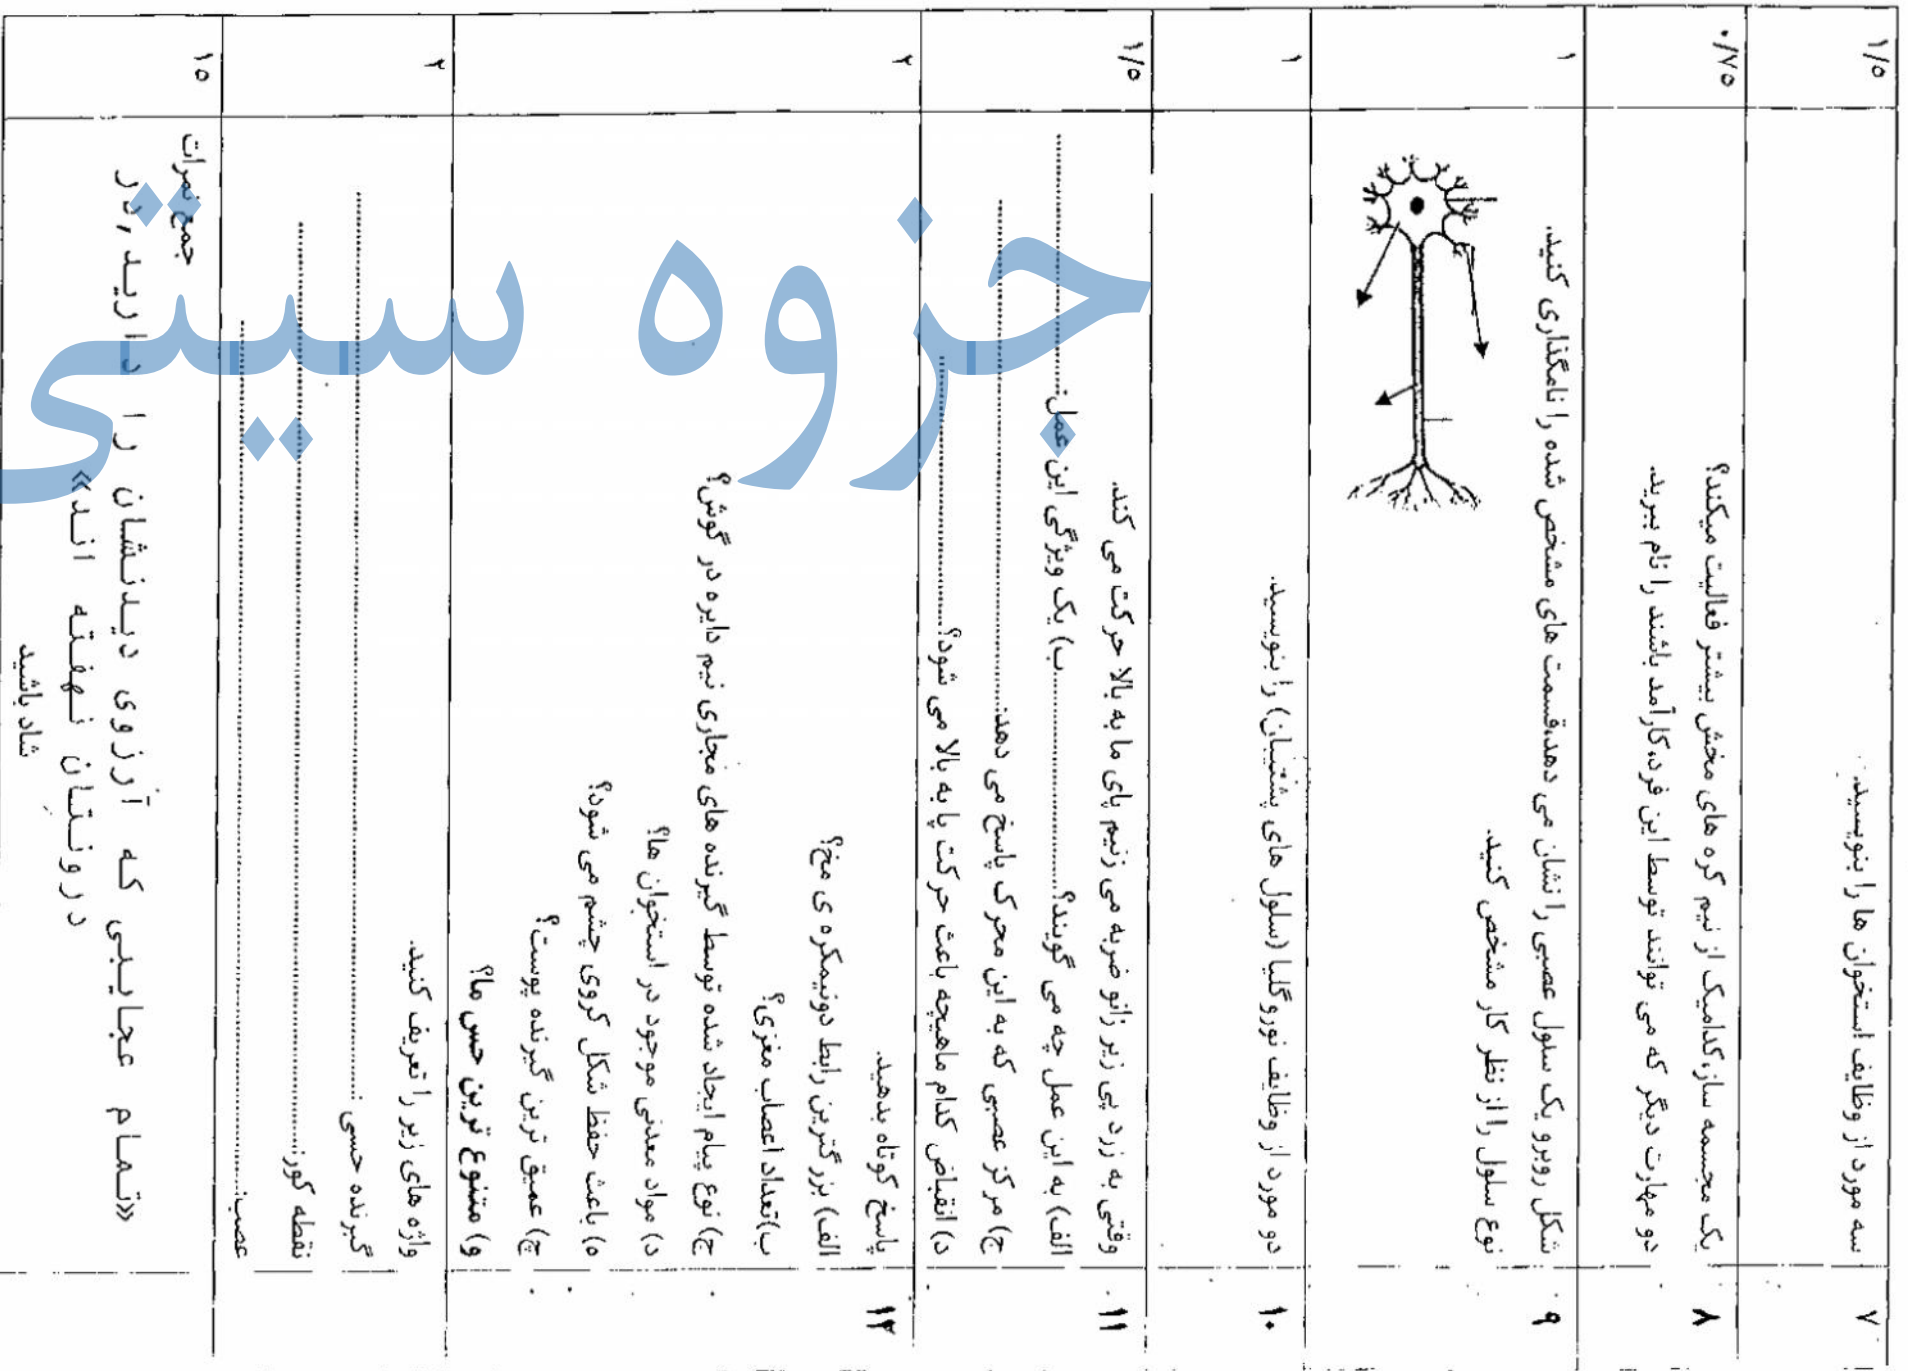 ۷ سه مورد از وظایف استخوان ها را بنویسید. ۱/۵
۸ یک مجسمه ساز،کدامیک از نیم کره های مخش بیشتر فعالیت میکند؟ ۰/۷۵
دو مهارت دیگر که می توانند توسط این فرد،کارآمد باشند را نام ببرید.
۹ شکل روبرو یک سلول عصبی را نشان می دهد،قسمت های مشخص شده را نامگذاری کنید. ۱
نوع سلول را از نظر کار مشخص کنید.
۱۰ دو مورد از وظایف نوروگلیا (سلول های پشتیبان) را بنویسید. ۱
۱۱ وقتی به زرد پی زیر زانو ضربه می زنیم پای ما به بالا حرکت می کند. ۱/۵
الف) به این عمل چه می گویند؟.................... ب) یک ویژگی این عمل:....................
ج) مرکز عصبی که به این محرک پاسخ می دهد:....................
د) انقباض کدام ماهیچه باعث حرکت پا به بالا می شود؟....................
۱۲ پاسخ کوتاه بدهید. ۲
الف) بزرگترین رابط دونیمکره ی مخ؟
ب)تعداد اعصاب مغزی؟
ج) نوع پیام ایجاد شده توسط گیرنده های مجاری نیم دایره در گوش؟
د) مواد معدنی موجود در استخوان ها؟
ه) باعث حفظ شکل کروی چشم می شود؟
چ) عمیق ترین گیرنده پوست؟
و) متنوع ترین حس ما؟
واژه های زیر را تعریف کنید. ۲
گیرنده حسی:....................
نقطه کور:....................
عصب:....................
جمع نمرات ۱۵
«تمام عجایبی که آرزوی دیدنشان را دارید,در
درونتان نهفته اند»
شاد باشید
جزوه سیتی